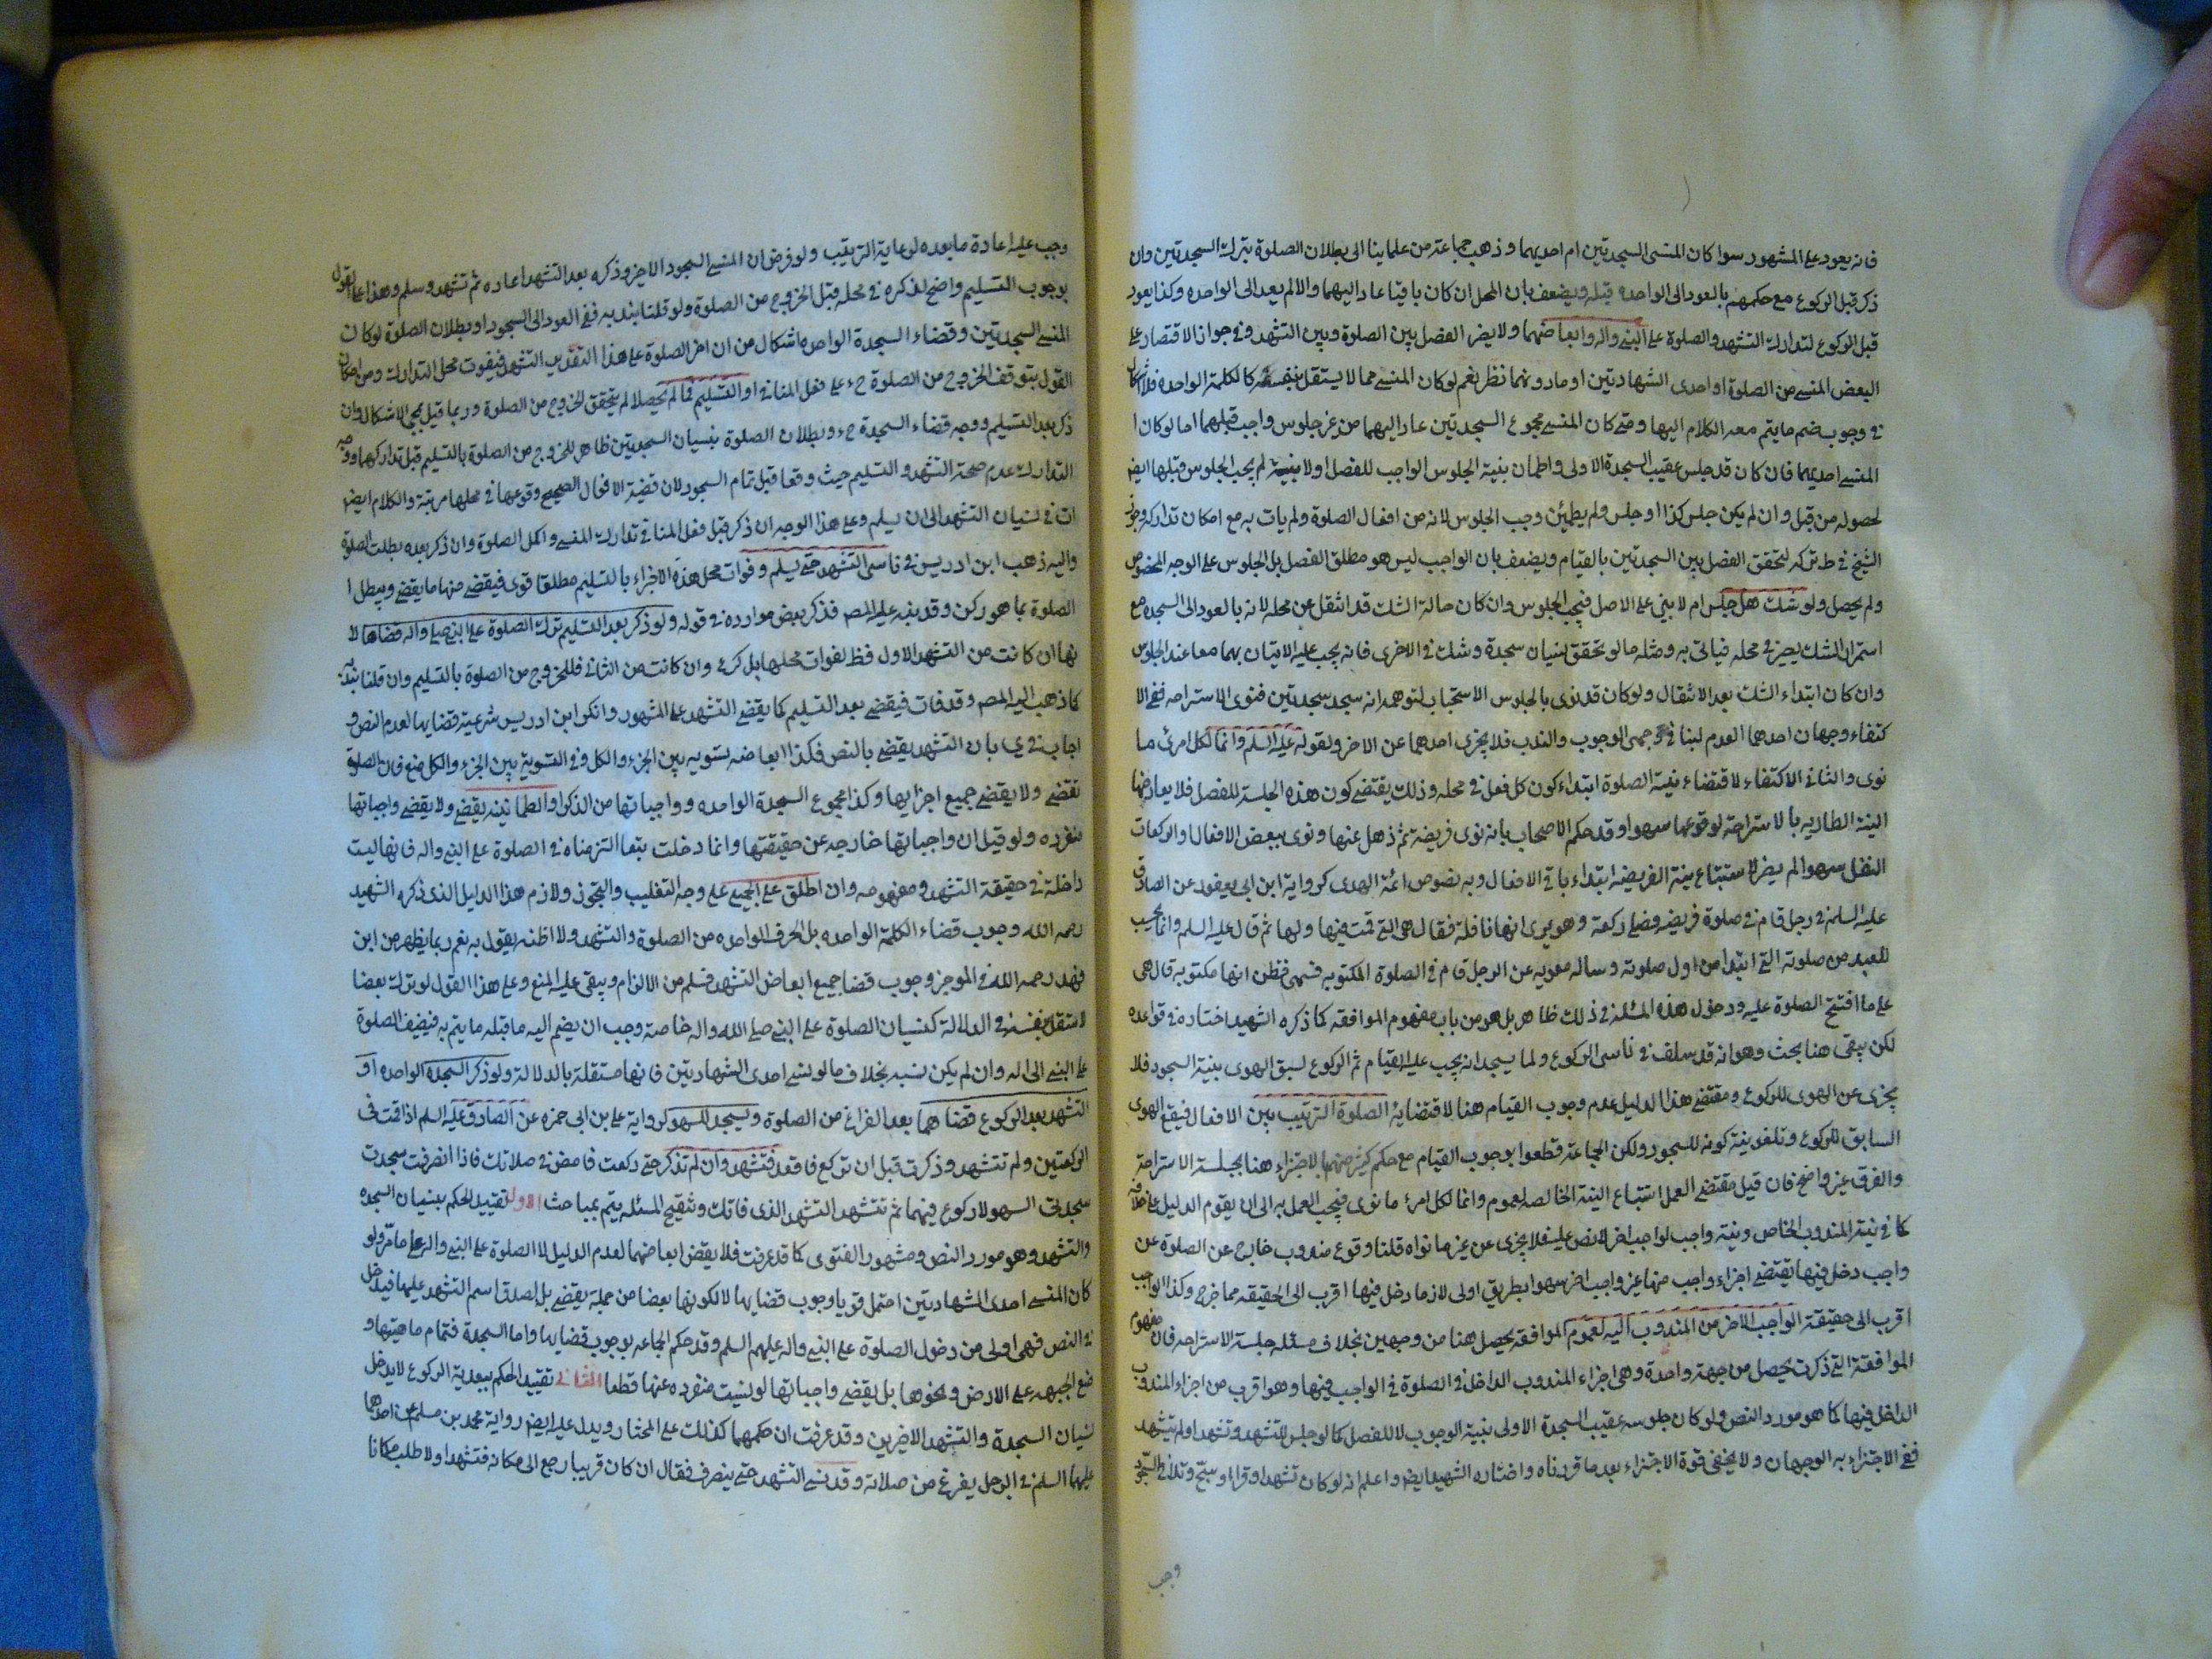 فانه يعود على المشهور سوا كان المنسى السجدتين ام احديهما وذهب جماعة من علماينا الى بطلان الصلوة بترك السجدتين وان
ذكر قبل الركوع مع حكمهم بالعود الى الواحدة قبله ويضعف بان المحل ان كان باقيا عاد اليهما والا لم يعد الى الواحده وكذا يعود
قبل الركوع لتدارك التشهد والصلوة على النبي واله وابعاضهما ولا يضر الفصل بين الصلوة وبين التشهد وفي جواز الاقتصار على
البعض المنسي من الصلوة او احدى الشهادتين او مادونهما نظر نعم لو كان المنسي مما لا يستقل بنفسه كالكلمة الواحده فلا اشكال
في وجوب ضم ما يتم معه الكلام اليها ومتى كان المنسي مجموع السجدتين عاد اليهما من غير جلوس واجب قبلهما اما لو كان ا
المنسي احديهما فان كان قد جلس عقيب السجدة الاولى واطمان بنية الجلوس الواجب للفصل اولا بنية لم يجب الجلوس قبلها ايضا
لحصوله من قبل وان لم يكن جلس كذا او جلس ولم يطمئن وجب الجلوس لانه من افعال الصلوة ولم يات به مع امكان تداركه
الشيخ في ط تركه لتحقق الفصل بين السجدتين بالقيام ويضعف بان الواجب ليس هو مطلق الفصل بل الجلوس على الوجه المخصوص
ولم يحصل ولو شك هل جلس ام لا بنى على الاصل فيجب الجلوس وان كان حالة الشك قد انتقل عن محله لانه بالعود الى السجدة مع
استمرار الشك يصير في محله فياتى به ومثله ما لو تحقق نسيان سجدة وشك في الاخرى فانه يجب عليه الاتيان بهما معا عند الجلوس
وان كان ابتداء الشك بعد الانتقال ولو كان قد نوى بالجلوس الاستحباب لتوهمه انه سجد سجدتين فنوى الاستراحه ففي الا
كتفاء وجهان احدهما العدم لتنافي وجهى الوجوب والندب فلا يجزى احدهما عن الاخر ولقوله عليه السلم وانما لكل امرئ ما
نوى والثاني الاكتفاء لاقتضاء نية الصلوة ابتداء كون كل فعل في محله وذلك يقتضي كون هذه الجلسة للفصل فلا يعارضها
النية الطارية بالاستراحة لوقوعها سهوا وقد حكم الاصحاب بانه لو نوى فريضة ثم ذهل عنها ونوى ببعض الافعال والركعات
النفل سهوا لم يضر لاستتباع نية الفريضه ابتداء باقي الافعال وبه نصوص ائمة الهدى كرواية ابن ابي يعفور عن الصادق
عليه السلم في رجل قام في صلوة فريضه فصلى ركعة وهو يرى انها نافلة فقال هي التي قمت فيها ولها ثم قال عليه السلم وانما يحسب
للعبد من صلوته التي ابتدا من اول صلوته وساله معويه عن الرجل قام في الصلوة المكتوبه فسهى فظن انها مكتوبه قال هي
على ما افتتح الصلوة عليه ودخول هذه المسئلة في ذلك ظاهر بل هو من باب مفهوم الموافقه كما ذكره الشهيد اختاره في قواعده
لكن يبقى هنا بحث وهو انه قد سلف في ناسي الركوع ولما يسجد انه يجب عليه القيام ثم الركوع لسبق الهوى بنية السجود فلا
يجزى عن الهوى للركوع ومقتضى هذا الدليل عدم وجوب القيام هنا لاقتضاء نية الصلوة الترتيب بين الافعال فيقع الهوى
السابق للركوع وتلغو نية كونه للسجود ولكن الجماعة قطعوا بوجوب القيام مع حكم كثير منهم بالاجتزاء هنا بجلسة الاستراحة
والفرق غير واضح فان قيل مقتضى العمل استتباع النية الخالصه لعموم وانما لكل امرئ ما نوى فيجب العمل به الى ان يقوم الدليل على خلافه
كما في نية المندوب الخاص ونية واجب لواجب اخر لا نص عليه فلا يجزى عن غير ما نواه قلنا وقوع مندوب خارج عن الصلوة عن
واجب دخل فيها يقتضي اجزاء واجب منها عن واجب اخر سهوا بطريق اولى لان ما دخل فيها اقرب الى الحقيقه مما خرج وكذا الواجب
اقرب الى حقيقة الواجب الاخر من المندوب اليه لعموم الموافقه يحصل هنا من وجهين بخلاف مسئله جلسة الاستراحه فان مفهوم
الموافقة التي ذكرت يحصل من جهة واحدة وهي اجزاء المندوب الداخل في الصلوة في الواجب فيها وهو اقرب من اجزاء المندوب
الداخل فيها كما هو مورد النص ولو كان جلوسه عقيب السجدة الاولى بنية الوجوب لا للفصل كما لو جلس للتشهد وتشهد او لم يتشهد
ففي الاجتزاء به الوجهان ولا يخفى قوة الاجتزاء بعد ما قررناه واختاره الشهيد ايضا واعلم انه لو كان تشهد او قرا او سبح وتلافى السجود
وجب
وجب عليه اعادة ما بعده لرعاية الترتيب ولو فرض ان المنسي السجود الاخير وذكره بعد التشهد اعاده ثم تشهد وسلم وهذا على القول
بوجوب التسليم واضح لذكره في محله قبل الخروج من الصلوة ولو قلنا بندبه ففي العود الى السجود او بطلان الصلوة لو كان
المنسي السجدتين وقضاء السجدة الواحده اشكال من ان اخر الصلوة على هذا التقدير التشهد فيفوت محل التدارك ومن امكان
القول بتوقف الخروج من الصلوة ح على فعل المنافي او التسليم فما لم يحصلا لم يتحقق الخروج من الصلوة وربما قيل بمجئ الاشكال وان
ذكر بعد التسليم ووجه قضاء السجدة ح وبطلان الصلوة بنسيان السجدتين ظاهر للخروج من الصلوة بالتسليم قبل تداركهما ووجه
التدارك عدم صحة التشهد والتسليم حيث وقعا قبل تمام السجود لان قضية الافعال الصحيح وقوعها في محلها مرتبة والكلام ايضا
ات في نسيان التشهد الى ان يسلم وعلى هذا الوجه ان ذكر قبل فعل المنافي تدارك المنسي واكمل الصلوة وان ذكر بعده بطلت الصلوة
واليه ذهب ابن ادريس في ناسى التشهد حتى يسلم وفوات محل هذه الاجزاء بالتسليم مطلقا قوى فيقضى منها ما يقضي ويبطل ا
الصلوة بما هو ركن وقد نبه عليه المص فذكر بعض موارده في قوله ولو ذكر بعد التسليم ترك الصلوة على النبي صلى واله قضاها لا
نها ان كانت من التشهد الاول فظ لفوات محلها بل كرع وان كانت من الثاني فللخروج من الصلوة بالتسليم وان قلنا بندبه
كما ذهب اليه المص وقد فات فيقضى بعد التسليم كما يقضى التشهد على المشهور وانكر ابن ادريس شرعية قضايها لعدم النص و
اجاب في ى بان التشهد يقضى بالنص فكذا ابعاضه تسويه بين الجزء والكل وفي التسوية بين الجزء والكل منع فان الصلوة
تقضى ولا يقضى جميع اجزايها وكذا مجموع السجدة الواحده وواجباتها من الذكر او الطمانينه يقضى ولا يقضى واجباتها
منفرده ولو قيل ان واجباتها خارجه عن حقيقتها وانما دخلت تبعا التزمناه في الصلوة على النبي واله فانها ليست
داخلة في حقيقة التشهد ومفهومه وان اطلق على الجميع على وجه التغليب والتجوز ولازم هذا الدليل الذى ذكره الشهيد
رحمه الله وجوب قضاء الكلمة الواحده بل الحرف الواحده من الصلوة والتشهد ولا اظنه يقول به نعم ربما يظهر من ابن
فهد رحمه الله في الموجز وجوب قضا جميع ابعاض التشهد فسلم من الالزام ويبقى عليه المنع وعلى هذا القول لو ترك بعضا
لا يستقل بنفسه في الدلالة كنسيان الصلوة على النبي صلى الله واله خاصة وجب ان يضم اليه ما قبله ما يتم به فيضيف الصلوة
على النبي الى اله وان لم يكن نسيه بخلاف ما لو نسي احدى الشهادتين فانها مستقلة بالدلالة ولو ذكر السجدة الواحده او
التشهد بعد الركوع قضاهما بعد الفراغ من الصلوة ويسجد للسهو كرواية على بن ابي حمزه عن الصادق عليه السلم اذا قمت في
الركعتين ولم تتشهد وذكرت قبل ان تركع فاقعد فتشهد وان لم تذكر حتى ركعت فامض في صلاتك فاذا انصرفت سجدت
سجدتى السهو لا ركوع فيهما ثم تتشهد التشهد الذى فاتك وتنقيح المسئله يتم بمباحث الاول تقييد الحكم بنسيان السجده
والتشهد وهو مورد النص ومشهور الفتوى كما قد عرفت فلا يقضى ابعاضهما لعدم الدليل الا الصلوة على النبي واله على ما مر ولو
كان المنسي احدى الشهادتين احتمل قويا وجوب قضايها لا لكونها بعضا من جملة يقضى بل لصدق اسم التشهد عليها فيدخل
في النص فهى اولى من دخول الصلوة على النبي واله عليهم السلم وقد حكم الجماعه بوجوب قضايها واما السجدة فتمام ماهيتها و
ضع الجبهه على الارض ونحوها بل يقضى واجباتها لو نسيت منفرده عنها قطعا الثانى تقييد الحكم ببعدية الركوع لا يدخل
نسيان السجدة والتشهد الاخيرين وقد عرفت ان حكمهما كذلك على المختار ويدل عليه ايضا رواية محمد بن مسلم عن احدهما
عليهما السلم في الرجل يفرغ من صلاته وقد نسى التشهد حتى ينصرف فقال ان كان قريبا رجع الى مكانه فتشهد اولا طلب مكانا